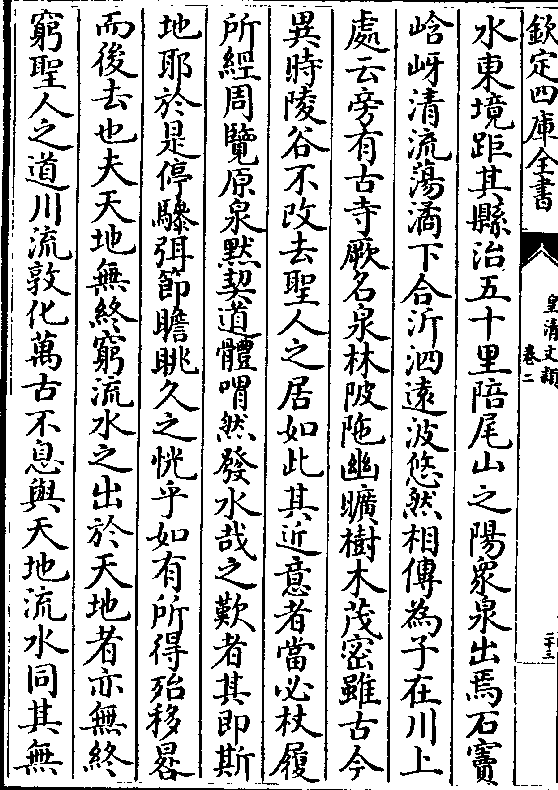 欽定四庫全書
皇清文穎
卷二
二十三
水東境距其縣治五十里陪尾山之陽衆泉出焉石竇
峆岈清流蕩潏下合沂泗遠波悠然相傳為子在川上
處云旁有古寺厥名泉林陂陁幽曠樹木茂密雖古今
異時陵谷不改去聖人之居如此其近意者當必杖履
所經周覽原泉黙契道體喟然發水哉之歎者其即斯
地耶於是停驂弭節瞻眺久之恍乎如有所得殆移晷
而後去也夫天地無終窮流水之出於天地者亦無終
窮聖人之道川流敦化萬古不息與天地流水同其無